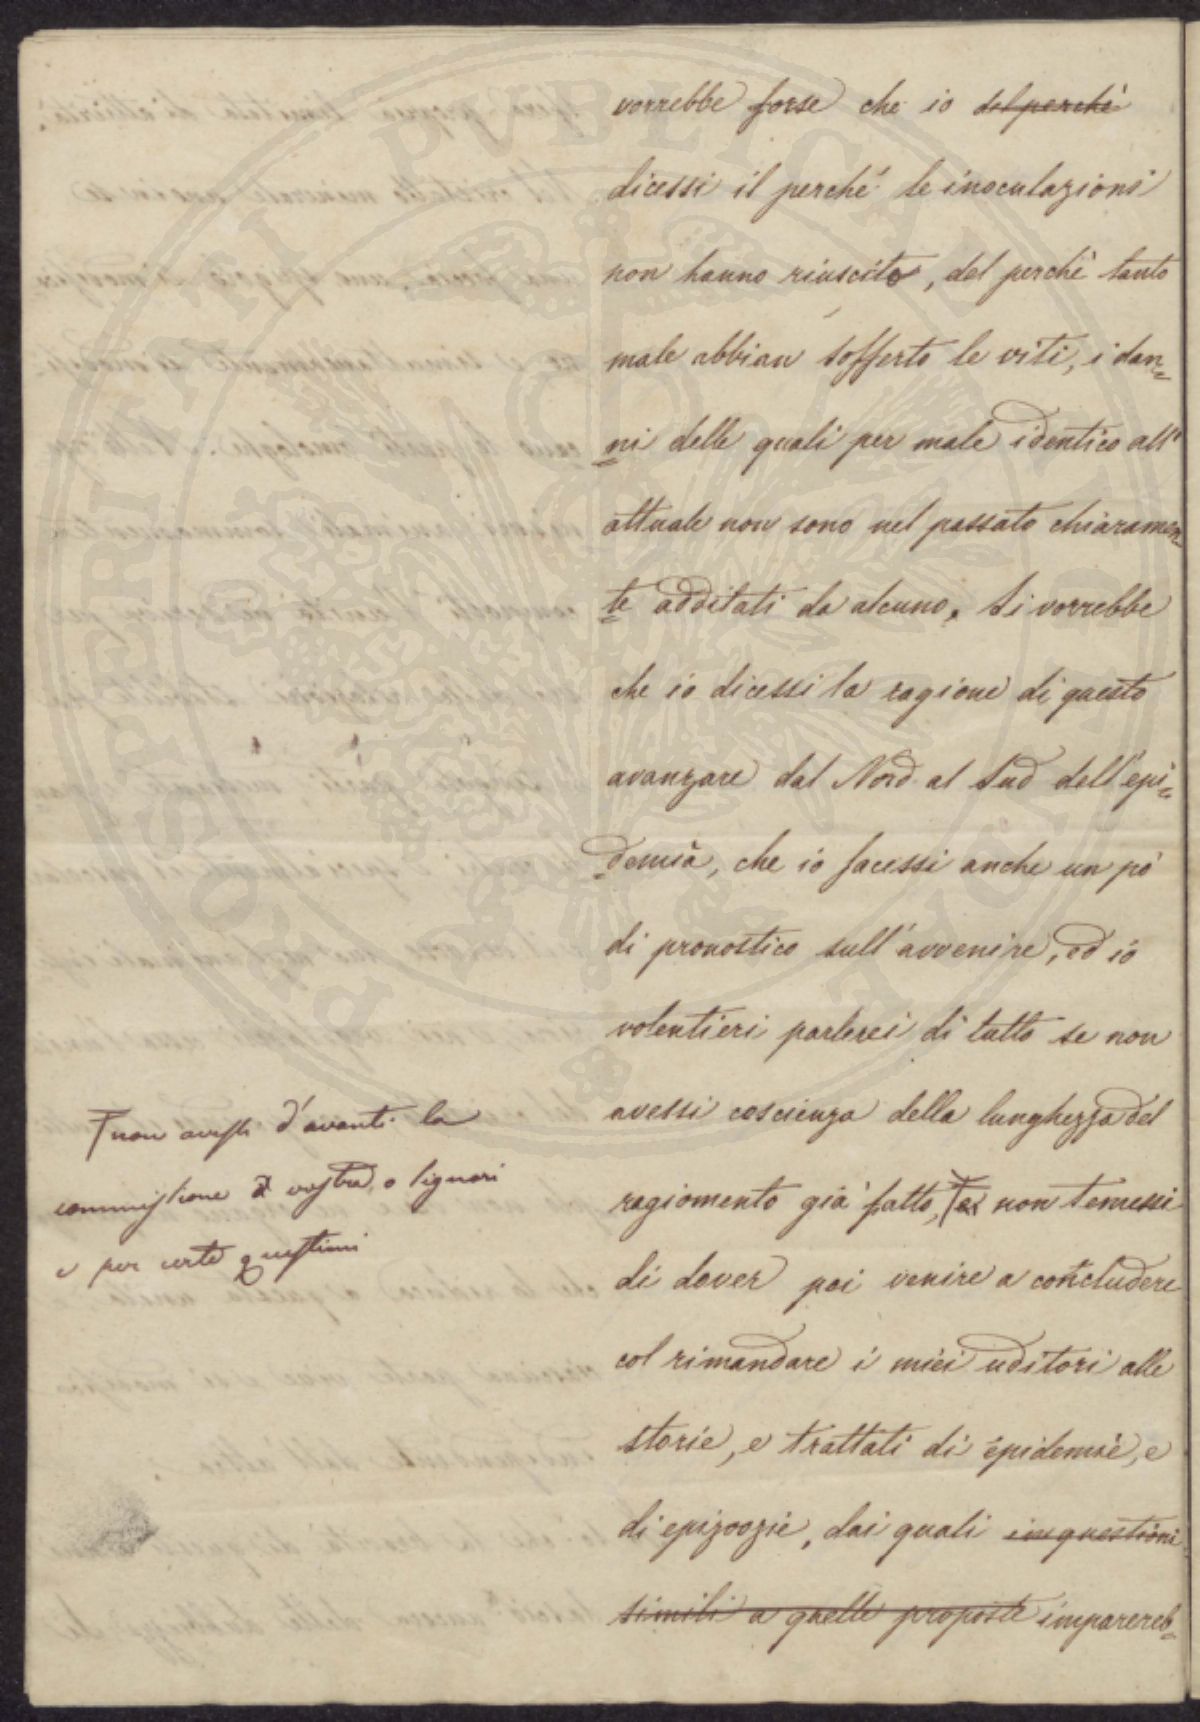 vorrebbe forse che io del perchè
dicessi il perchè le inoculazioni
non hanno riuscito, del perchè tanto
male abbian sofferto le viti, i dan=
ni delle quali per male identico all'
attuale non sono nel passato chiaramen=
te additati da alcuno. Si vorrebbe
che io dicessi la ragione di questo
avanzare dal Nord al Sud dell'epi=
demia, che io facessi anche un pò
di pronostico sull'avvenire, ed io
volentieri parlerei di tutto se non
avessi coscienza della lunghezza del
ragiomento già fatto, e non temessi
di dover poi venire a concludere
col rimandare i miei uditori alle
storie, e trattati di epidemie, e
di epizoozie, dai quali in questioni
simili a quelle proposte imparereb=
non avessi d'avanti la
commissione vostra o Signori
e per certe questioni
PROSPERITATI PUBLICAE